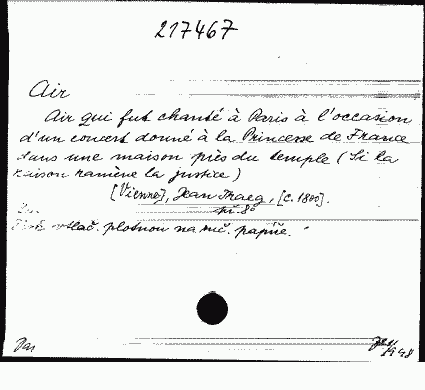 217467
Air
Air qui fut chanté à Paris à l'occasion
d'un concert donné à la Princesse de France
dans une maison près du temple (Si la
raison ramène la justice)
[Vienne], Jean Traeg, [c. 1800].
př. 8°
vtlač. plotnou na ruč. papíře.
1948